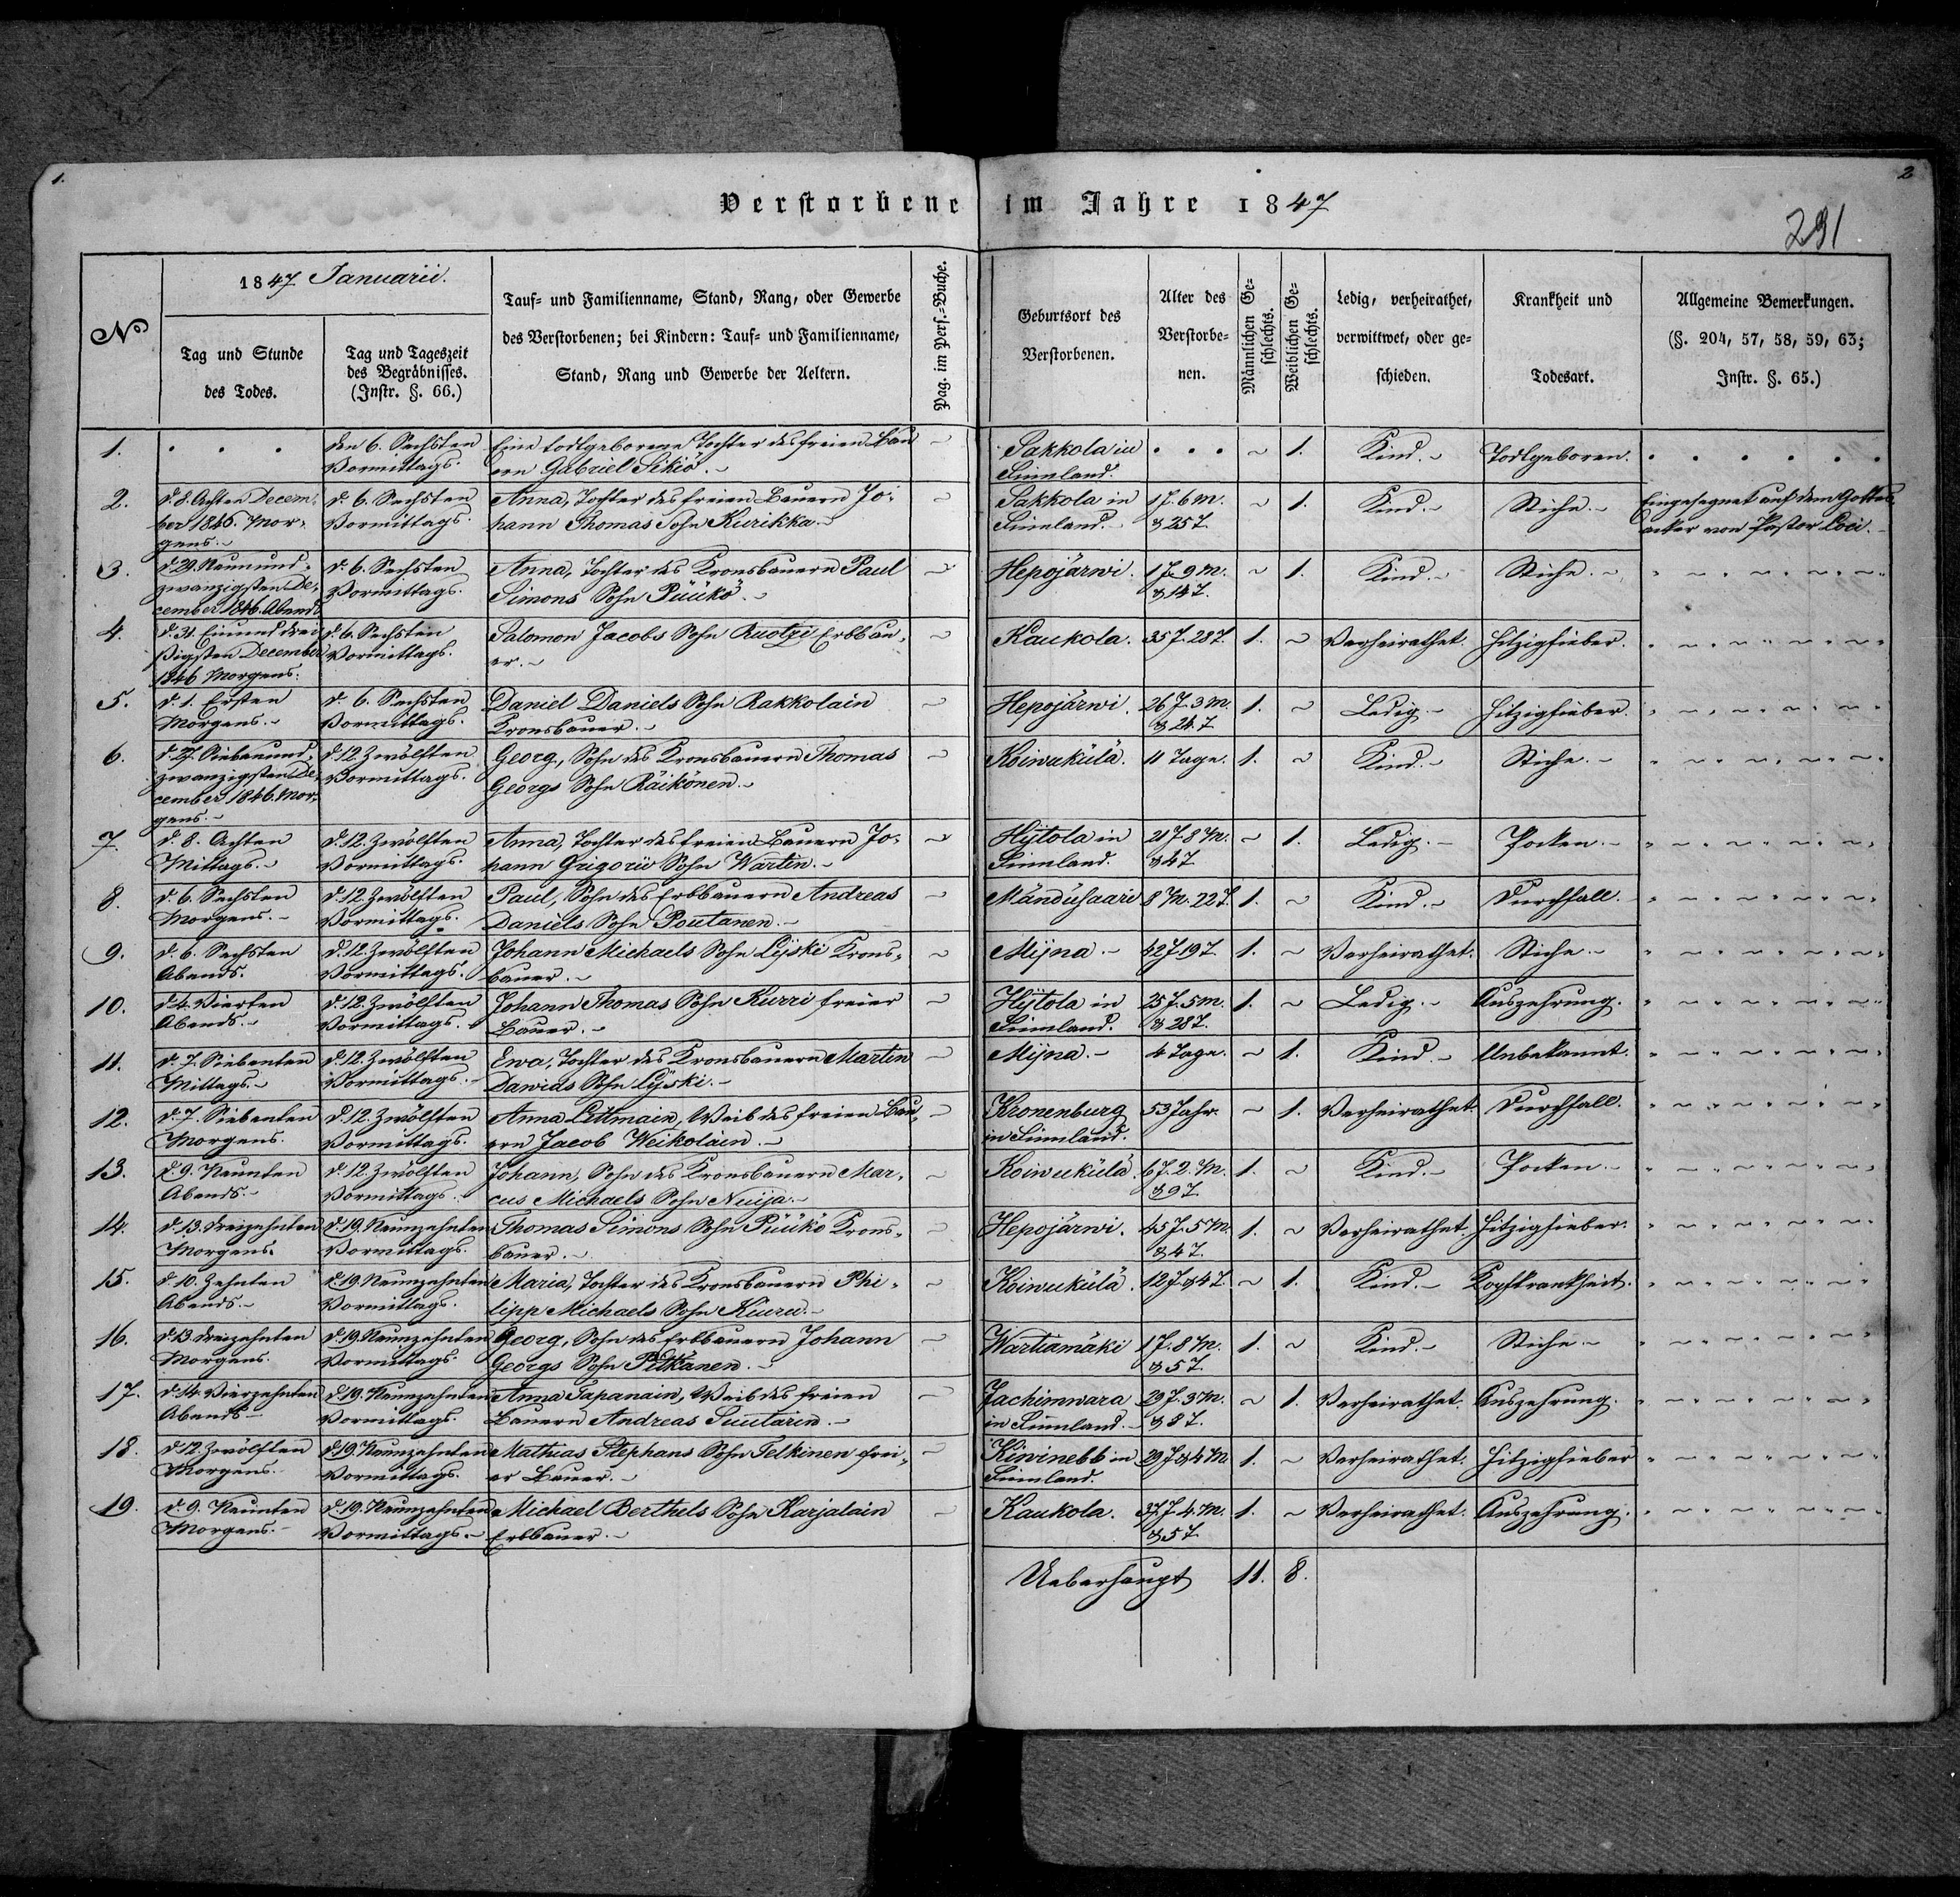 1.
2
Verstorbene im Jahre 1847
291
No
1847 Januarii.
Tag und Stunde
des Todes.
Tag und Tageszeit
des Begräbnisses.
(Instr. §. 66.)
Tauf- und Familienname, Stand, Rang, oder Gewerbe
des Verstorbenen; bei Kindern: Tauf- und Familienname,
Stand, Rang und Gewerbe der Aeltern.
Pag. im Pers.-Buche.
Geburtsort des
Verstorbenen.
Alter des
Verstorbe-
nen.
Männlichen Ge-
schlechts.
Weiblichen Ge-
schlechts.
Ledig, verheirathet,
verwittwet, oder ge-
schieden.
Krankheit und
Todesart.
Allgemeine Bemerkungen.
(§. 204, 57, 58, 59, 63;
Instr. §. 65.)
1.
den 6. Sechsten
Vormittags.
Eine todtgeborene Tochter des freien Bau
ern Gabriel Sikiö.
Sakkola in
Finnland.
1.
Kind.
Todtgeboren.
2.
d. 8. Achten Decem-
ber 1846. Mor-
gens.
d. 6. Sechsten
Vormittags.
Anna, Tochter des freien Bauern Jo-
hann Thomas Sohn Kurikka.
Sakkola in
Finnland.
1 J. 6 M.
& 25 T.
1.
Kind.
Stiche.
Eingesegnet auf dem Gottes
acker von Pastor Loci.
3.
d. 29. Neunund-
zwanzigsten De-
cember 1846. Abends
d. 6. Sechsten
Vormittags.
Anna, Tochter des Kronsbauern Paul
Simons Sohn Püükö.
Hepojärwi.
1 J. 9 M.
& 14 T.
1.
Kind.
Stiche.
4.
d. 31. Einunddrei
ßigsten December
1846 Morgens.
d. 6. Sechsten
Vormittags.
Salomon Jacobs Sohn Ruotzi Erbbau-
er.
Kaukola.
35 J. 28 T.
1.
Verheirathet.
Hitzigfieber.
5.
d. 1. Ersten
Morgens.
d. 6. Sechsten
Vormittags.
Daniel Daniels Sohn Rakkolain
Kronsbauer.
Hepojärwi.
26 J. 3 M.
& 24 T.
1.
Ledig.
Hitzigfieber.
6.
d. 27. Siebenund-
zwanzigsten De-
cember 1846. Mor-
gens.
d. 12. Zwölften
Vormittags.
Georg, Sohn des Kronsbauern Thomas
Georgs Sohn Räikönen.
Koiwukülä.
11 Tage.
1.
Kind.
Stiche.
7.
d. 8. Achten
Mittags.
d. 12. Zwölften
Vormittags.
Anna, Tochter des freien Bauern Jo-
hann Grigorii Sohn Wartin.
Hijtola in
Finnland.
21 J. 8 M.
& 4 T.
1.
Ledig.
Pocken.
8.
d. 6. Sechsten
Morgens.
d. 12. Zwölften
Vormittags.
Paul, Sohn des Erbbauern Andreas
Daniels Sohn Poutanen.
Mändüsaari
8 M. 22 T.
1.
Kind.
Durchfall.
9.
d. 6. Sechsten
Abends.
d. 12. Zwölften
Vormittags.
Johann Michaels Sohn Lijski Krons-
bauer.
Mijna.
42 J 19 T.
1.
Verheirathet.
Stiche.
10.
d. 4. Vierten
Abends.
d. 12. Zwölften
Vormittags.
Johann Thomas Sohn Kurri freier
Bauer.
Hijtola in
Finnland.
25 J. 5 M.
& 28 T.
1.
Ledig.
Auszehrung.
11.
d. 7. Siebenten
Mittags.
d. 12. Zwölften
Vormittags.
Ewa, Tochter des Kronsbauern Martin
Dawids Sohn Lijski.
Mijna.
4 Tage.
1.
Kind.
Unbekannt.
12.
d. 7. Siebenten
Morgens.
d. 12. Zwölften
Vormittags.
Anna Littmain, Weib des freien Bau-
ern Jacob Weikolain.
Kronenburg
in Finnland.
53 Jahr.
1.
Verheirathet.
Durchfall.
13.
d. 9. Neunten
Abends.
d. 12. Zwölften
Vormittags.
Johann, Sohn des Kronsbauern Mar-
cus Michaels Sohn Nuija.
Koiwukülä.
6 J. 2. M.
& 9 T.
1.
Kind.
Pocken.
14.
d. 13. Dreizehnten
Morgens.
d. 19. Neunzehnten
Vormittags.
Thomas Simons Sohn Püükö Krons-
bauer.
Hepojärwi.
45 J. 5 M.
& 4 T.
1.
Verheirathet.
Hitzigfieber.
15.
d. 10. Zehnten
Abends.
d. 19. Neunzehnten
Vormittags.
Maria, Tochter des Kronsbauern Phi-
lipp Michaels Sohn Kiuru.
Koiwukülä.
12 J. & 4 T.
1.
Kind.
Kopfkrankheit.
16.
d. 13. Dreizehnten
Morgens.
d. 19. Neunzehnten
Vormittags.
Georg, Sohn des Erbbauern Johann
Georgs Sohn Pitkänen.
Wartiamäki
1 J. 8 M.
& 5 T.
1.
Kind.
Stiche.
17.
d. 14. Vierzehnten
Abends
d. 19. Neunzehnten
Vormittags.
Anna Tapanain, Weib des freien
Bauern Andreas Suutarin.
Jachimwara
in Finnland.
29 J. 3 M.
& 8 T.
1.
Verheirathet.
Auszehrung.
18.
d. 12. Zwölften
Morgens.
d. 19. Neunzehnten
Vormittags.
Mathias Stephans Sohn Telkinen frei-
er Bauer.
Kiwinebb in
Finnland.
29 J. & 4 M
1.
Verheirathet.
Hitzigfieber
19.
d. 9. Neunten
Morgens.
d. 19. Neunzehnten
Vormittags.
Michael Berthels Sohn Karjalain
Erbbauer.
Kaukola.
37 J. 4. M.
& 5 T.
1.
Verheirathet.
Auszehrung.
Ueberhaupt
11.
8.